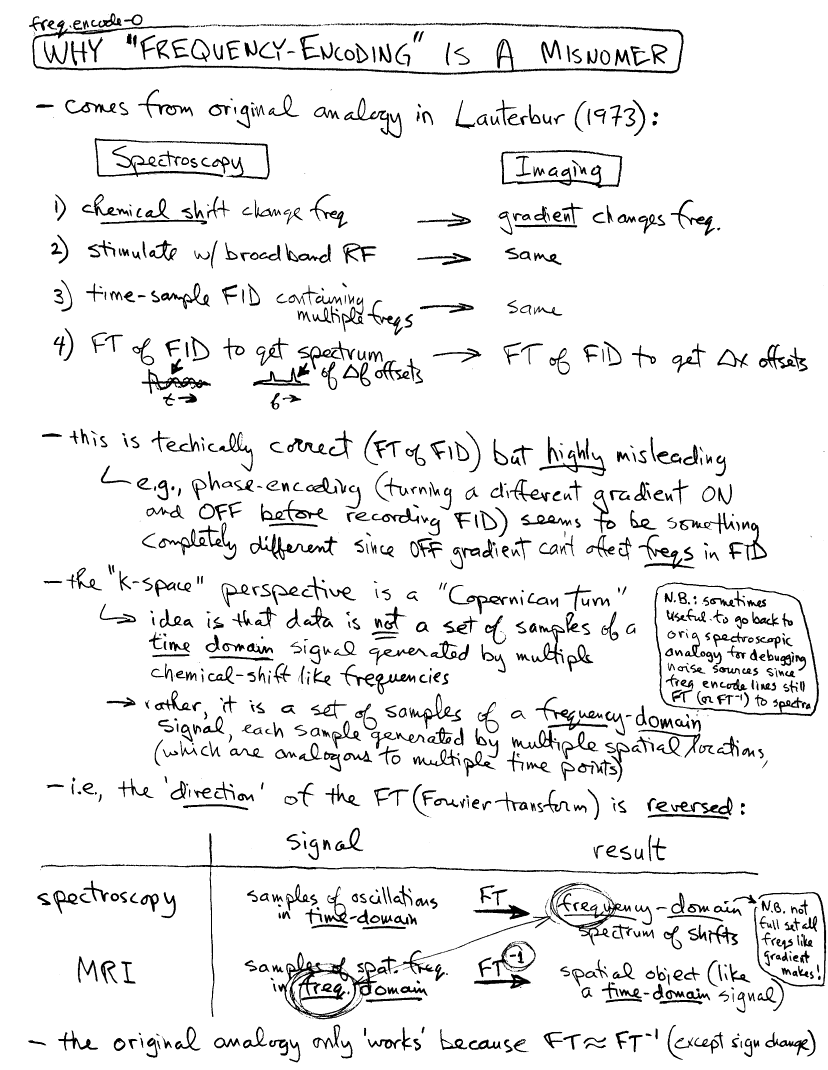 freq.encode-0
WHY "FREQUENCY-ENCODING" IS A MISNOMER
- comes from original analogy in Lauterbur (1973):
Spectroscopy
Imaging
1) chemical shift change freq → gradient changes freq.
2) stimulate w/ broadband RF → same
3) time-sample FID containing multiple freqs → same
4) FT of FID to get spectrum of Δf offsets → FT of FID to get Δx offsets
t→
f→
- this is techically correct (FT of FID) but highly misleading
↳ e.g., phase-encoding (turning a different gradient ON
and OFF before recording FID) seems to be something
completely different since OFF gradient can't affect freqs in FID
- the "k-space" perspective is a "Copernican Turn"
↳ idea is that data is not a set of samples of a
time domain signal generated by multiple
chemical-shift like frequencies
N.B.: sometimes
useful to go back to
orig spectroscopic
analogy for debugging
noise sources since
freq encode lines still
FT (or FT⁻¹) to spectra
→ rather, it is a set of samples of a frequency-domain
signal, each sample generated by multiple spatial locations,
(which are analogous to multiple time points)
- i.e., the 'direction' of the FT (Fourier transform) is reversed:
signal
result
spectroscopy
samples of oscillations
in time-domain
FT
frequency-domain
spectrum of shifts
N.B. not
full set all
freqs like
gradient
makes!
MRI
samples of spat. freq.
in freq. domain
FT⁻¹
spatial object (like
a time-domain signal)
- the original analogy only 'works' because FT ≈ FT⁻¹ (except sign change)